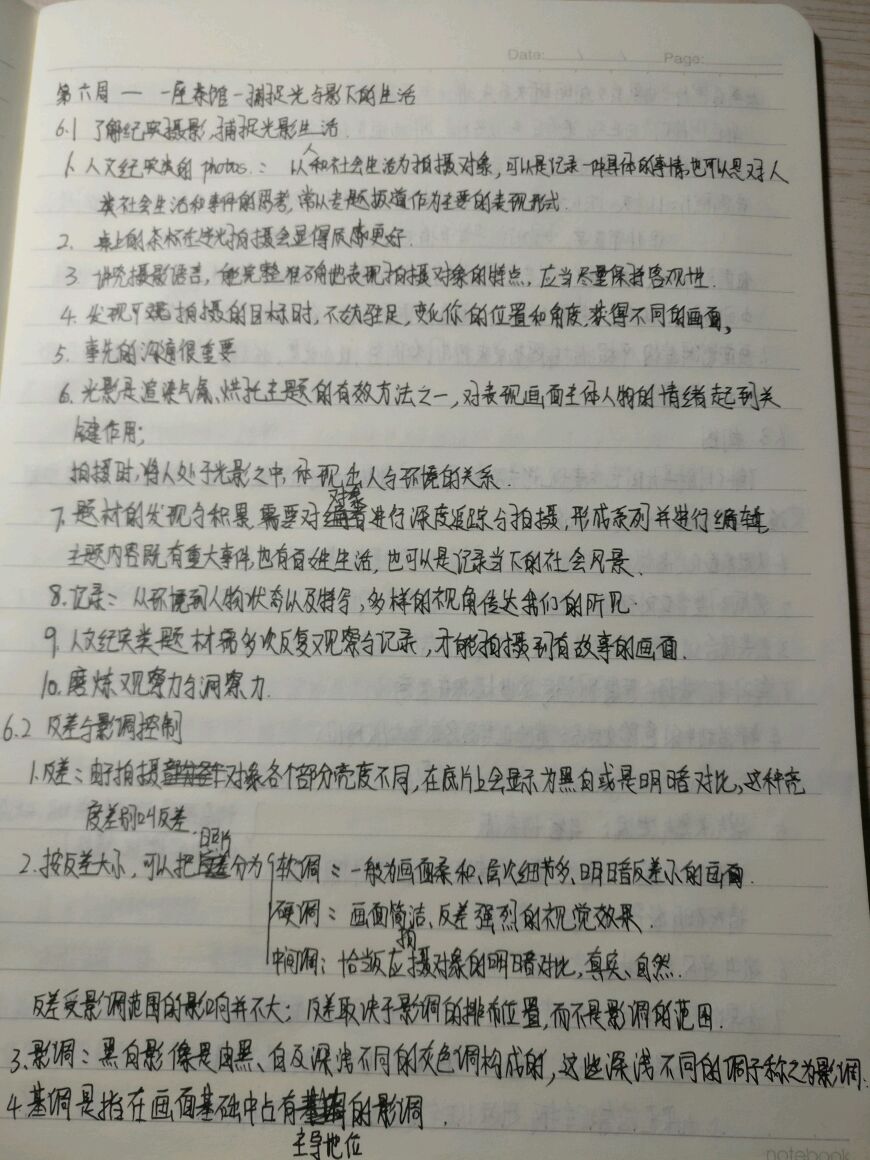 Date: / / Page:
第六周 — 一座茶馆-捕捉光与影下的生活
6.1 了解纪实摄影,捕捉光影生活
1. 人文纪实类的photos.: 以人和社会生活为拍摄对象,可以是记录一件具体的事情,也可以是对人
类社会生活和事件的思考,常以专题报道作为主要的表现形式.
2. 桌上的茶杯在逆光拍摄会显得质感更好.
3. 讲究摄影语言,能完整准确地表现拍摄对象的特点,应当尽量保持客观性.
4. 发现可拍摄的目标时,不妨驻足,变化你的位置和角度,获得不同的画面。
5. 事先的沟通很重要
6. 光影是渲染气氛、烘托主题的有效方法之一,对表现画面主体人物的情绪起到关
键作用;
拍摄时,将人处于光影之中,体现出人与环境的关系.
7. 题材的发现与积累,需要对对象进行深度追踪与拍摄,形成系列并进行编辑
主题内容既有重大事件,也有百姓生活,也可以是记录当下的社会风景.
8. 记录: 从环境到人物状态以及特写,多样的视角传达我们的所见.
9. 人文纪实类题材需多次反复观察与记录,才能拍摄到有故事的画面.
10. 磨炼观察力与洞察力.
6.2 反差与影调控制
1. 反差: 由于拍摄对象各个部分亮度不同,在底片上会显示为黑白或是明暗对比,这种亮
度差别叫反差.
2. 按反差大小,可以把照片分为 软调: 一般为画面柔和、层次细节多、明暗反差小的画面.
硬调: 画面简洁、反差强烈的视觉效果.
中间调: 恰当反应拍摄对象的明暗对比,真实、自然.
反差受影调范围的影响并不大; 反差取决于影调的排布位置,而不是影调的范围.
3. 影调: 黑白影像是由黑、白及深浅不同的灰色调构成的,这些深浅不同的调子称之为影调.
4. 基调是指在画面基础中占有主导地位的影调.
notebook